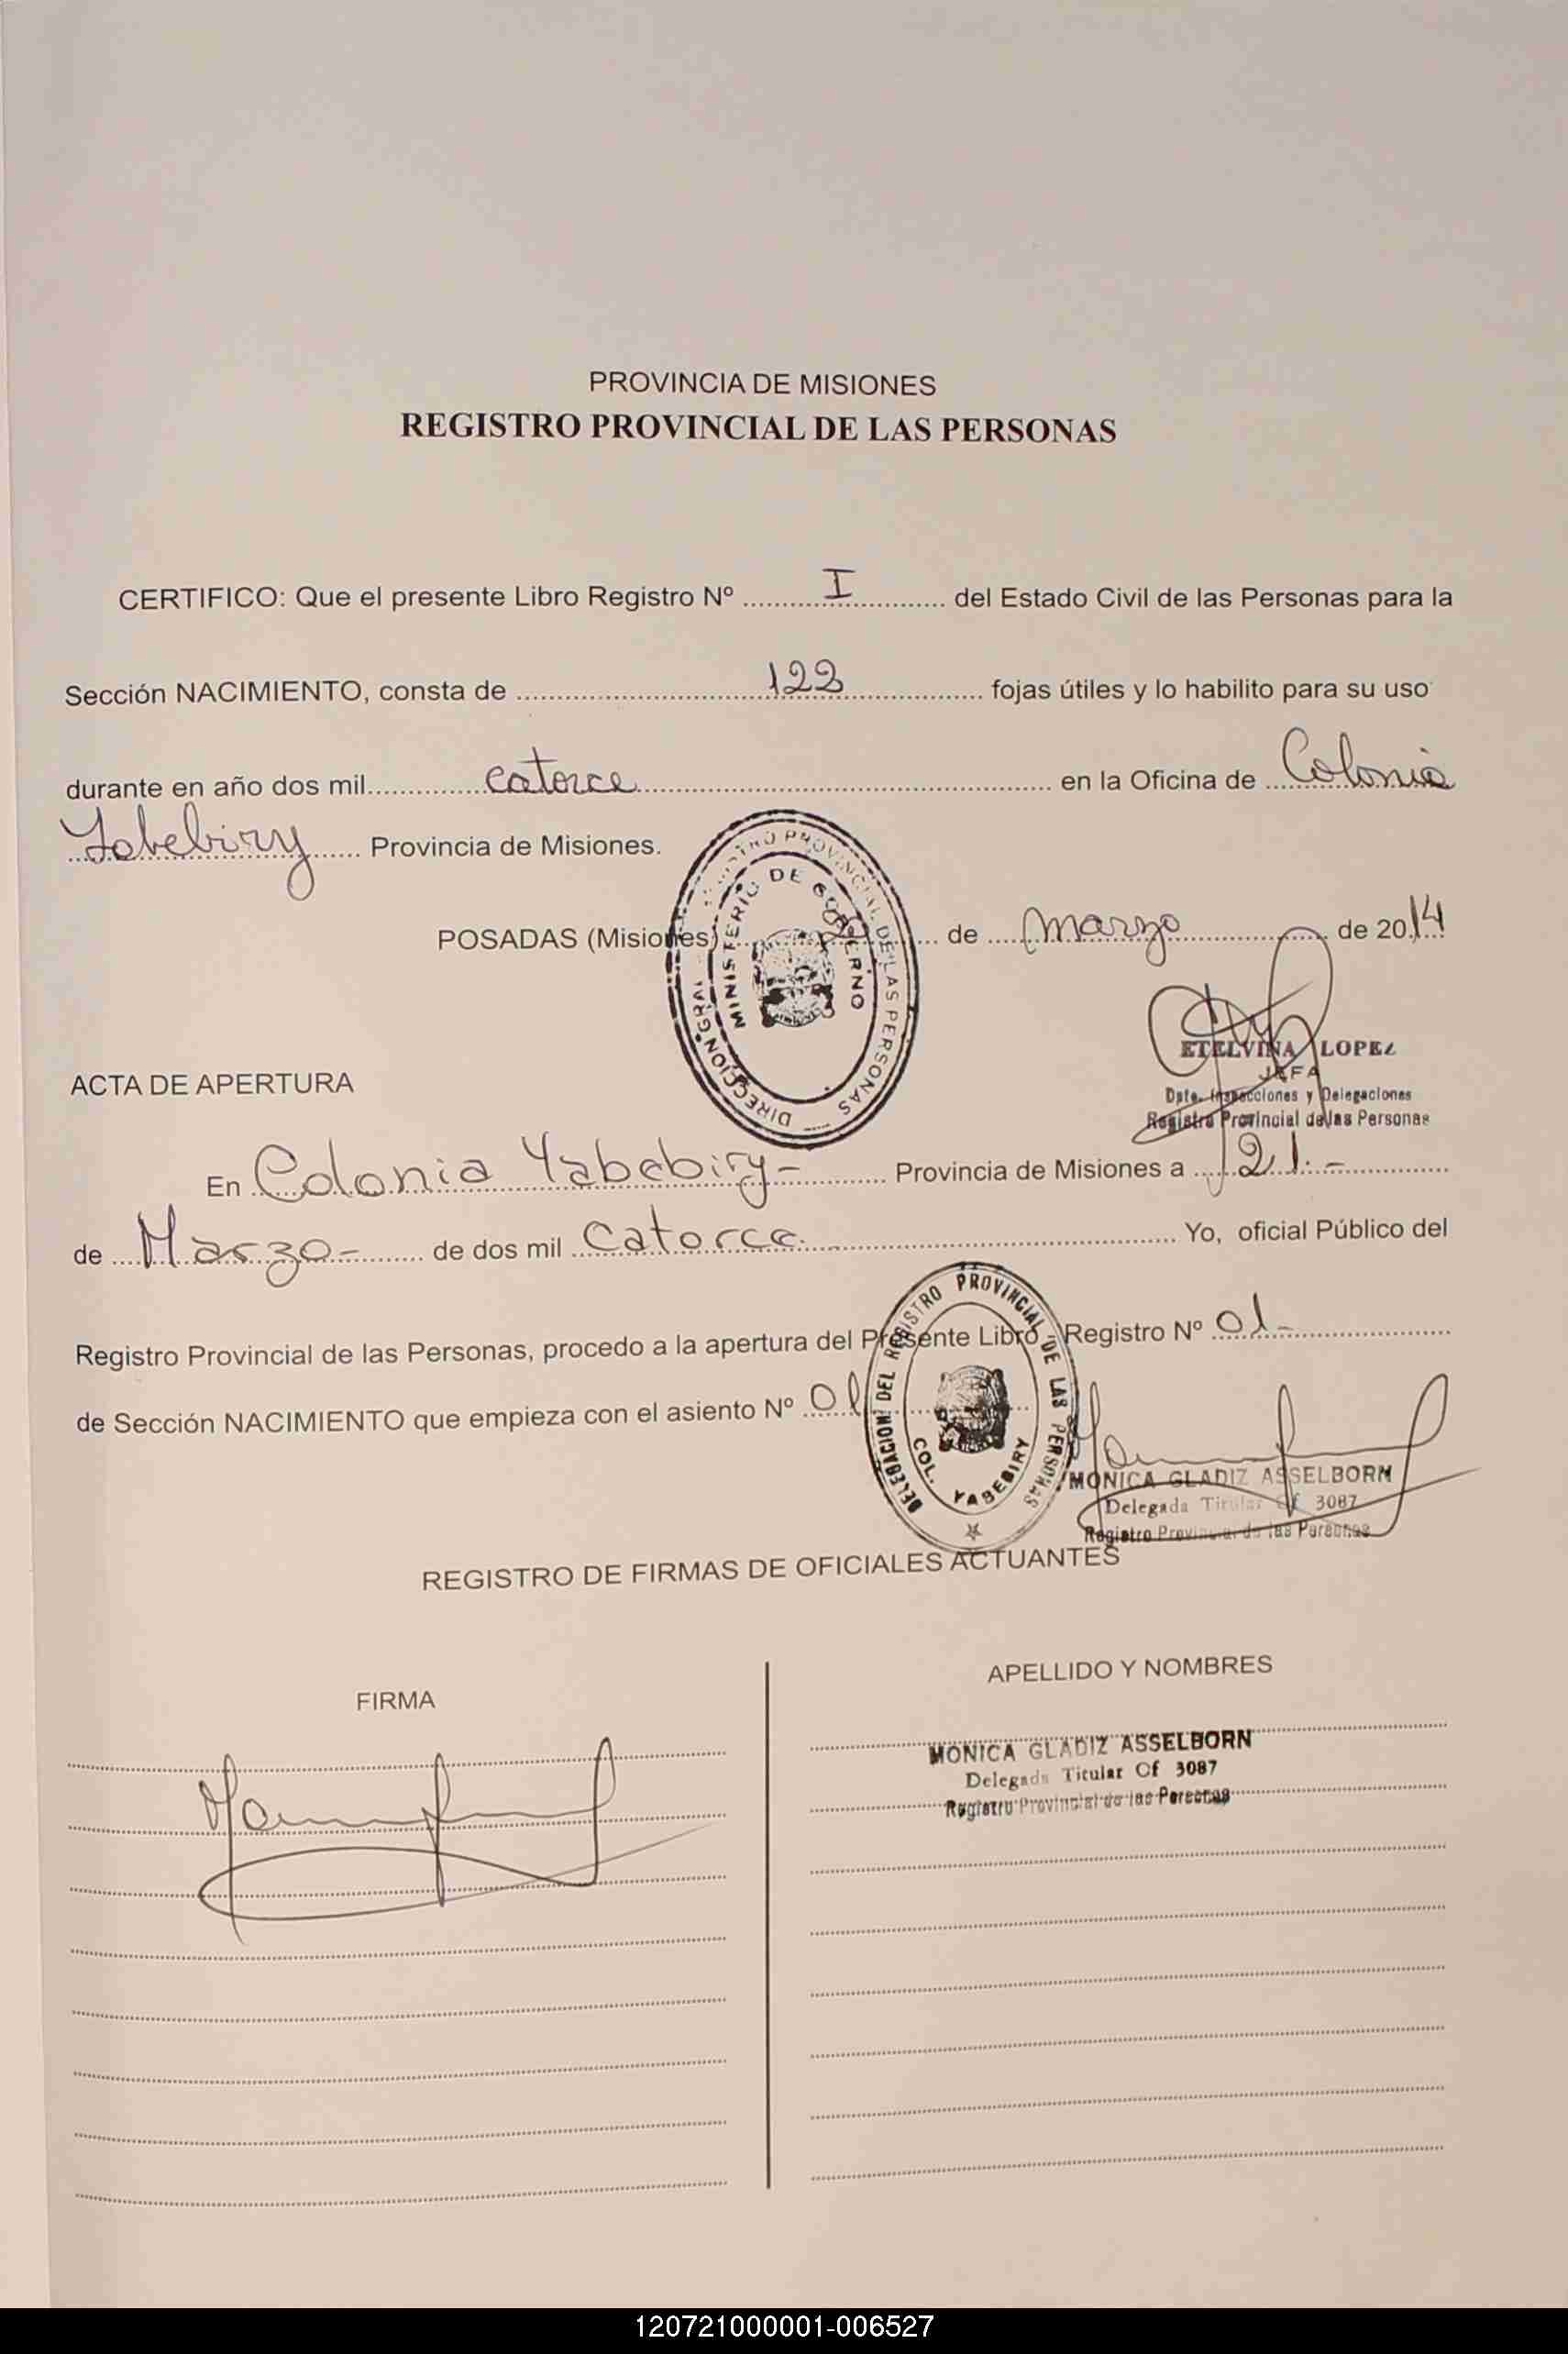 PROVINCIA DE MISIONES
REGISTRO PROVINCIAL DE LAS PERSONAS
CERTIFICO: Que el presente Libro Registro Nº I del Estado Civil de las Personas para la
Sección NACIMIENTO, consta de 122 fojas útiles y lo habilito para su uso
durante en año dos mil catorce en la Oficina de Colonia
Yabebiry Provincia de Misiones.
POSADAS (Misiones) de marzo de 2014
DIRECCION GRAL. REGISTRO PROVINCIAL DE LAS PERSONAS
MINISTERIO DE GOBIERNO
ETELVINA LOPEZ
JEFA
Dpto. Inspecciones y Delegaciones
Registro Provincial de las Personas
ACTA DE APERTURA
En Colonia Yabebiry- Provincia de Misiones a 21.-
de Marzo- de dos mil Catorce. Yo, oficial Público del
Registro Provincial de las Personas, procedo a la apertura del Presente Libro Registro Nº 01-
de Sección NACIMIENTO que empieza con el asiento Nº 01
DELEGACION DEL REGISTRO PROVINCIAL DE LAS PERSONAS
COL. YABEBIRY
MONICA GLADIZ ASSELBORN
Delegada Titular Cf 3087
Registro Provincial de las Personas
REGISTRO DE FIRMAS DE OFICIALES ACTUANTES
FIRMA
APELLIDO Y NOMBRES
MONICA GLADIZ ASSELBORN
Delegada Titular Cf 3087
Registro Provincial de las Personas
120721000001-006527